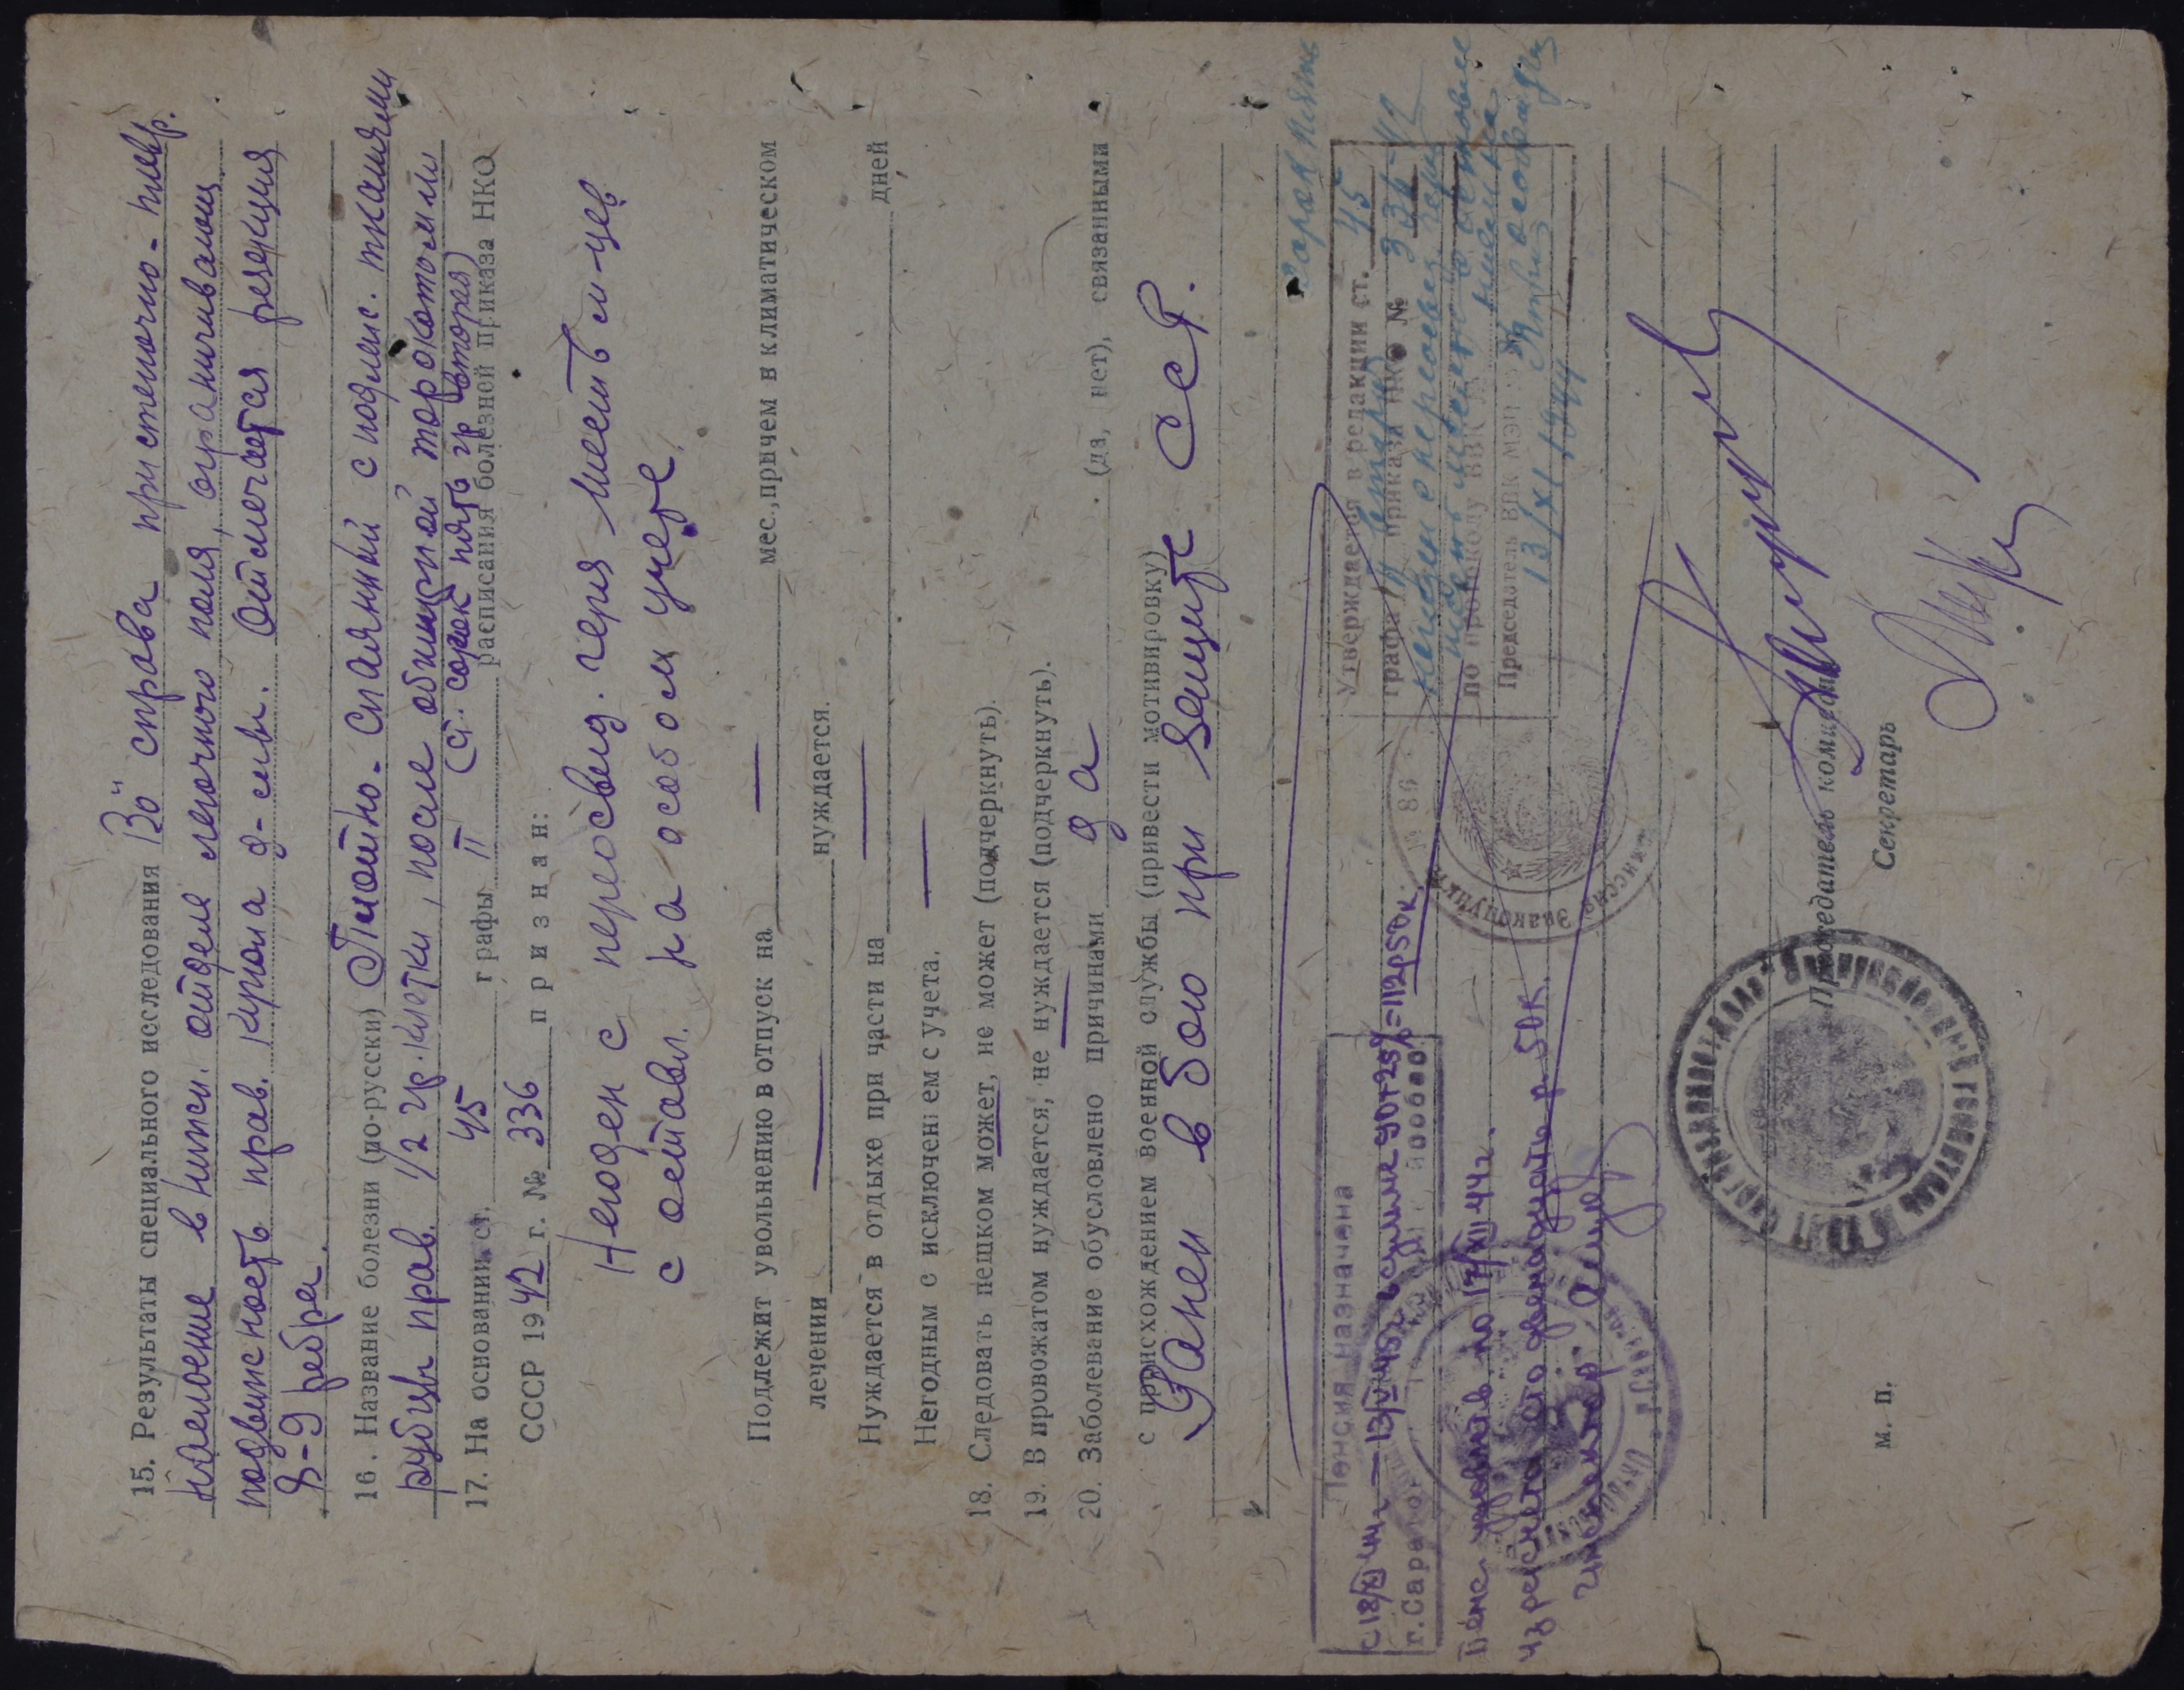 15. Результаты специального исследования Во" справа пристеночно-плевр.
наслоение в нижн. отделе легочного поля, ограничивающ
подвижность прав. купола д-мы. Отмечается резекция
8-9 ребра.
16. Название болезни (по-русски) Плотно-спаянный с подлеж. тканями
рубец прав. 1/2 гр. клетки, после обширной торокотомии
(ст. сорок пять гр вторая)
17. На основании ст. 45 графы II расписания болезней приказа НКО
СССР 1942 г. № 336 признан:
Негоден с переосвид. через шесть м-цев
с оставл. на особом учете.
Подлежит увольнению в отпуск на — мес., причем в климатическом
лечении — нуждается.
Нуждается в отдыхе при части на — дней
Негодным с исключением с учета. —
18. Следовать пешком может, не может (подчеркнуть).
19. В провожатом нуждается, не нуждается (подчеркнуть).
20. Заболевание обусловлено причинами да (да, нет), связанными
с происхождением военной службы (привести мотивировку)
Ранен в бою при защите ССР.
Пенсия назначена
с 18/XI 44г. — 13/V 45г. в сумме 90+25%=112р50к.
г. Саратов
Пенс. удовлетв. по 17/XII 44г.
из расчета сто двенадцать р. 50к.
Инспектор
Сорок пять
Утверждается в редакции ст. 45
графа II вторая приказа НКО № 336-42
негоден с переосвид. через
по протоколу ВВК №
Председатель ВВК МЭП
13/XI 1944
Председатель комиссии
Секретарь
м. п.